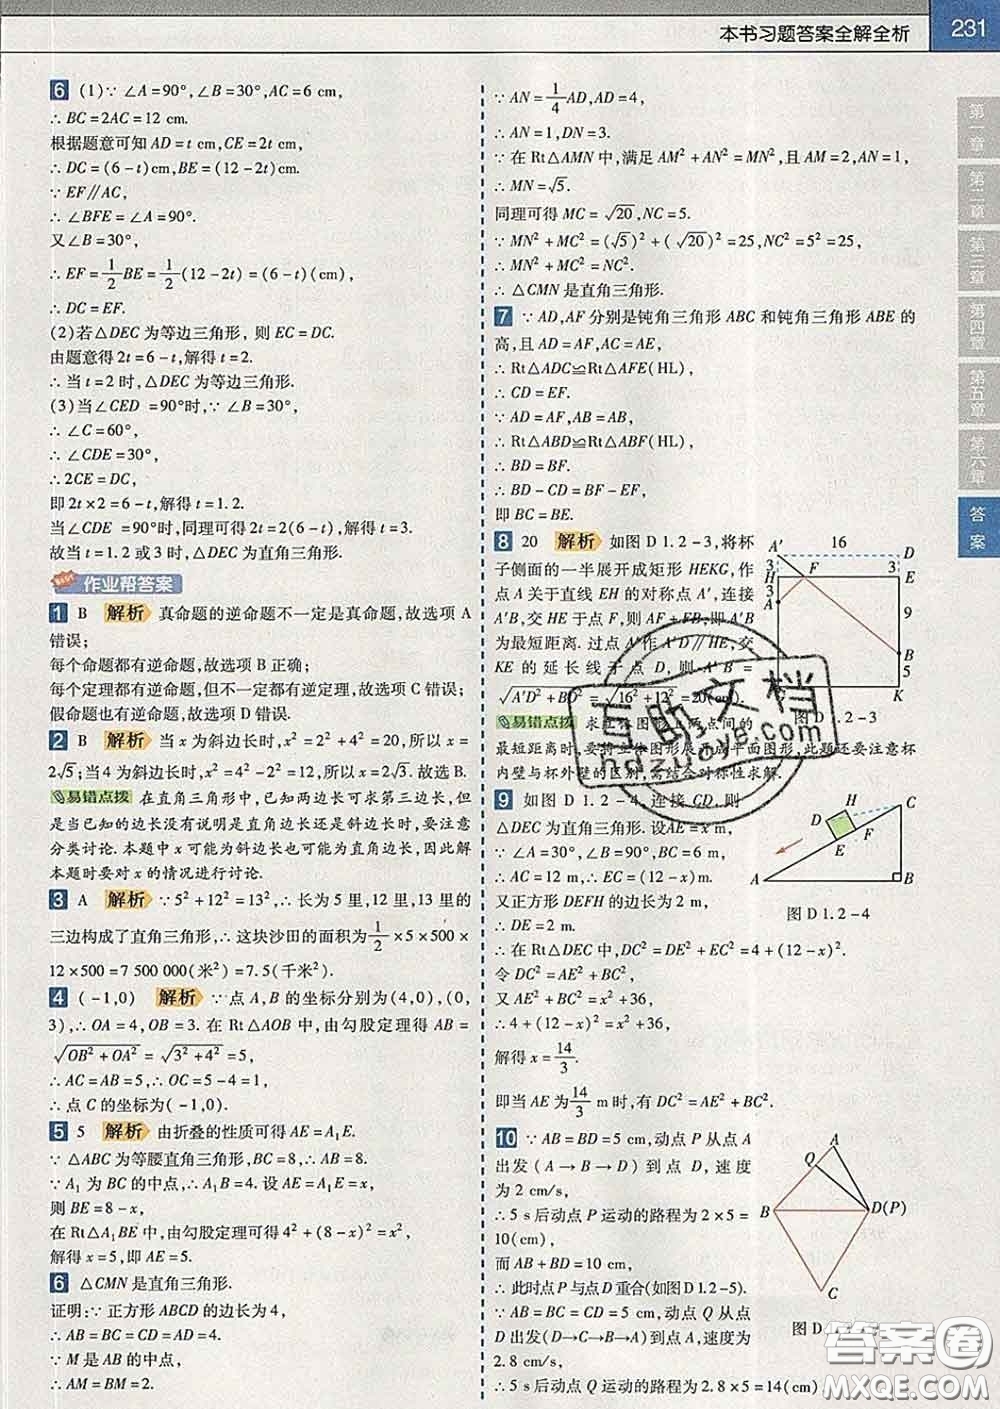 本书习题答案全解全析 231
6 (1)∵∠A=90°,∠B=30°,AC=6 cm,
∴BC=2AC=12 cm.
根据题意可知 AD=t cm,CE=2t cm,
∴DC=(6-t)cm,BE=(12-2t)cm.
∵EF∥AC,
∴∠BFE=∠A=90°.
又∠B=30°,
∴EF=1/2BE=1/2(12-2t)=(6-t)(cm),
∴DC=EF.
(2)若△DEC 为等边三角形, 则 EC=DC.
由题意得 2t=6-t,解得 t=2.
∴当 t=2 时,△DEC 为等边三角形.
(3)当∠CED =90°时,∵∠B=30°,
∴∠C=60°,
∴∠CDE=30°,
∴2CE=DC,
即 2t×2=6-t,解得 t=1.2.
当∠CDE =90°时,同理可得 2t=2(6-t),解得 t=3.
故当 t=1.2 或 3 时,△DEC 为直角三角形.
BEST 作业帮答案
1 B 解析 真命题的逆命题不一定是真命题,故选项 A
错误;
每个命题都有逆命题,故选项 B 正确;
每个定理都有逆命题,但不一定都有逆定理,故选项 C 错误;
假命题也有逆命题,故选项 D 错误.
2 B 解析 当 x 为斜边长时,x²=2²+4²=20,所以 x=
2√5;当 4 为斜边长时,x²=4²-2²=12,所以 x=2√3. 故选 B.
易错点拨 在直角三角形中,已知两边长可求第三边长,但
是当已知的边长没有说明是直角边长还是斜边长时,要注意
分类讨论. 本题中 x 可能为斜边长也可能为直角边长,因此解
本题时要对 x 的情况进行讨论.
3 A 解析 ∵5²+12²=13²,∴长为 5 里,12 里,13 里的
三边构成了直角三角形,∴这块沙田的面积为1/2×5×500×
12×500=7 500 000(米²)=7.5(千米²).
4 (-1,0) 解析 ∵点 A,B 的坐标分别为(4,0),(0,
3),∴OA=4,OB=3. 在 Rt△AOB 中,由勾股定理得 AB=
√OB²+OA²=√3²+4²=5,
∴AC=AB=5,∴OC=5-4=1,
∴点 C 的坐标为(-1,0).
5 5 解析 由折叠的性质可得 AE=A₁E.
∵△ABC 为等腰直角三角形,BC=8,∴AB=8.
∵A₁ 为 BC 的中点,∴A₁B=4. 设 AE=A₁E=x,
则 BE=8-x,
在 Rt△A₁BE 中,由勾股定理可得 4²+(8-x)²=x²,
解得 x=5,即 AE=5.
6 △CMN 是直角三角形.
证明:∵正方形 ABCD 的边长为 4,
∴AB=BC=CD=DA=4,
∵M 是 AB 的中点,
∴AM=BM=2.
∵AN=1/4AD,AD=4,
∴AN=1,DN=3.
∵在 Rt△AMN 中,满足 AM²+AN²=MN²,且 AM=2,AN=1,
∴MN=√5.
同理可得 MC=√20,NC=5.
∵MN²+MC²=(√5)²+(√20)²=25,NC²=5²=25,
∴MN²+MC²=NC²,
∴△CMN 是直角三角形.
7 ∵AD,AF 分别是钝角三角形 ABC 和钝角三角形 ABE 的
高,且 AD=AF,AC=AE,
∴Rt△ADC≌Rt△AFE(HL),
∴CD=EF.
∵AD=AF,AB=AB,
∴Rt△ABD≌Rt△ABF(HL),
∴BD=BF.
∴BD-CD=BF-EF,
即 BC=BE.
8 20 解析 如图 D 1.2-3,将杯
子侧面的一半展开成矩形 HEKG,作
点 A 关于直线 EH 的对称点 A′,连接
A′B,交 HE 于点 F,则 AF+FB=A′B
为最短距离. 过点 A′作 A′D∥HE,交
KE 的延长线于点 D,则 A′B=
√A′D²+BD²=√16²+12²=20(cm).
易错点拨 求立体图形上两点间的
最短距离时,要将立体图形展开成平面图形,此题还要注意杯
内壁与杯外壁的区别,需结合对称性求解.
A′ 16 D
3 3
H F E
3
A 9
B
5
G K
图 D 1.2-3
9 如图 D 1.2-4,连接 CD,则
△DEC 为直角三角形. 设AE=x m,
∵∠A=30°,∠B=90°,BC=6 m,
∴AC=12 m,∴EC=(12-x)m.
又正方形 DEFH 的边长为 2 m,
∴DE=2 m.
∴在 Rt△DEC 中,DC²=DE²+EC²=4+(12-x)².
令 DC²=AE²+BC²,
又 AE²+BC²=x²+36,
∴4+(12-x)²=x²+36,
解得 x=14/3.
即当 AE 为14/3 m时,有 DC²=AE²+BC².
H C
D F
E
A B
图 D 1.2-4
10 ∵AB=BD=5 cm,动点 P 从点 A
出发(A→B→D)到点 D,速度
为 2 cm/s,
∴5 s后动点 P 运动的路程为 2×5=
10(cm),
而 AB+BD=10 cm,
∴此时点 P 与点 D 重合(如图 D 1.2-5).
∵AB=BC=CD=5 cm,动点 Q 从点
D 出发(D→C→B→A)到点 A,速度为
2.8 cm/s,
∴5 s后动点 Q 运动的路程为 2.8×5=14(cm).
A
Q
B D(P)
C
图 D
第一章
第二章
第三章
第四章
第五章
第六章
答案
互助文档
hdzuoye.com
答案圈
MXQE.COM